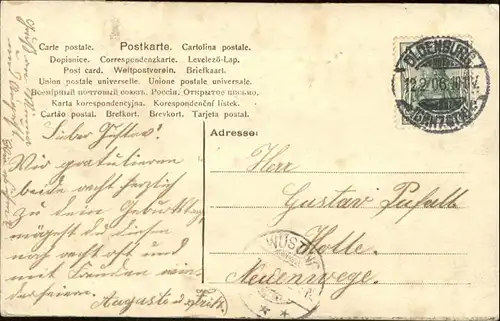 Carte postale. Postkarte. Cartolina postale.
Dopisnice. Correspondenzkarte. Levelező-Lap.
Post card. Weltpostverein. Briefkaart.
Union postale universelle. Unione postale universale.
Всемірный почтовый союзъ. Россія. Открытое письмо.
Karta korespondencyjna. Korespondenční lístek.
Cartão postal. Brefkort. Brevkort. Tarjeta postal.
Lieber Gustav!
Wir gratulieren
beide recht herzlich
zu dem Geburtstag,
mögest du diesen
noch recht oft und
mit Freuden wie-
derfeiern.
Auguste u. Fritz.
Adresse:
Herr
Gustav
Holle
Neuenwege.
OLDENBURG
12.2.06
(GRHZGT.)
WÜSTING